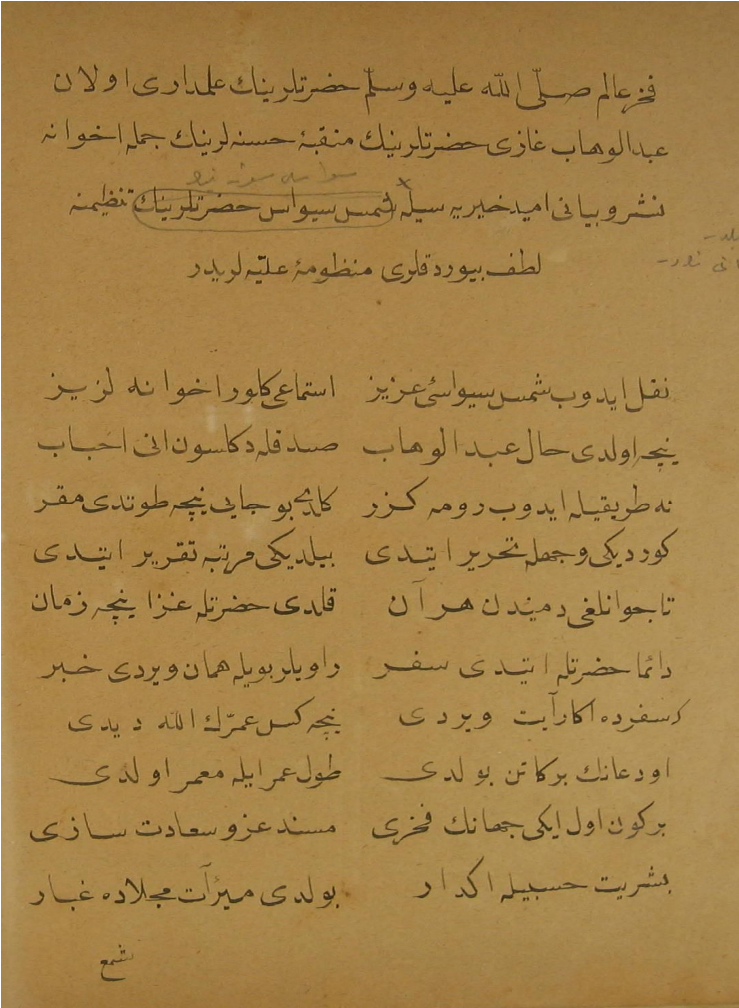 فخر عالم صلّی اللّه علیه وسلّم حضرتلرینك علمداری اولان
عبدالوهاب غازی حضرتلرینك منقبۀ حسنه لرینك جمله اخوانه
نشر و بیانی امید خیریه سیله شمس سیواسی حضرتلرینك تنظیمنه
لطف بیوردقلری منظومۀ علیّه لریدر
نقل ایدوب شمس سیواسئ عزیز استماعی كلور اخوانه لزیز
نیچه اولدی حال عبدالوهاب صدقله دكلسون انی احباب
نه طریقیله ایدوب رومه كزر كلدی بو جایی نیچه طوتدی مقر
كوردیكی وجهله تحریر ایتدی بیلدیكی مرتبه تقریر ایتدی
تا جوانلغی دمیندن هر آن قلدی حضرتله غزا نیچه زمان
دائما حضرتله ایتدی سفر راویلر بویله همان ویردی خبر
سفرده اكا رآیت ویردی نیچه كس عمرّك الله دیدی
او دعانك بركاتن بولدی طول عمر ایله معمر اولدی
بركون اول ایكی جهانك فخری مسند عزو سعادت سازی
بشریت حسبیله اكدار بولدی میرآت مجلاده غبار
شمع